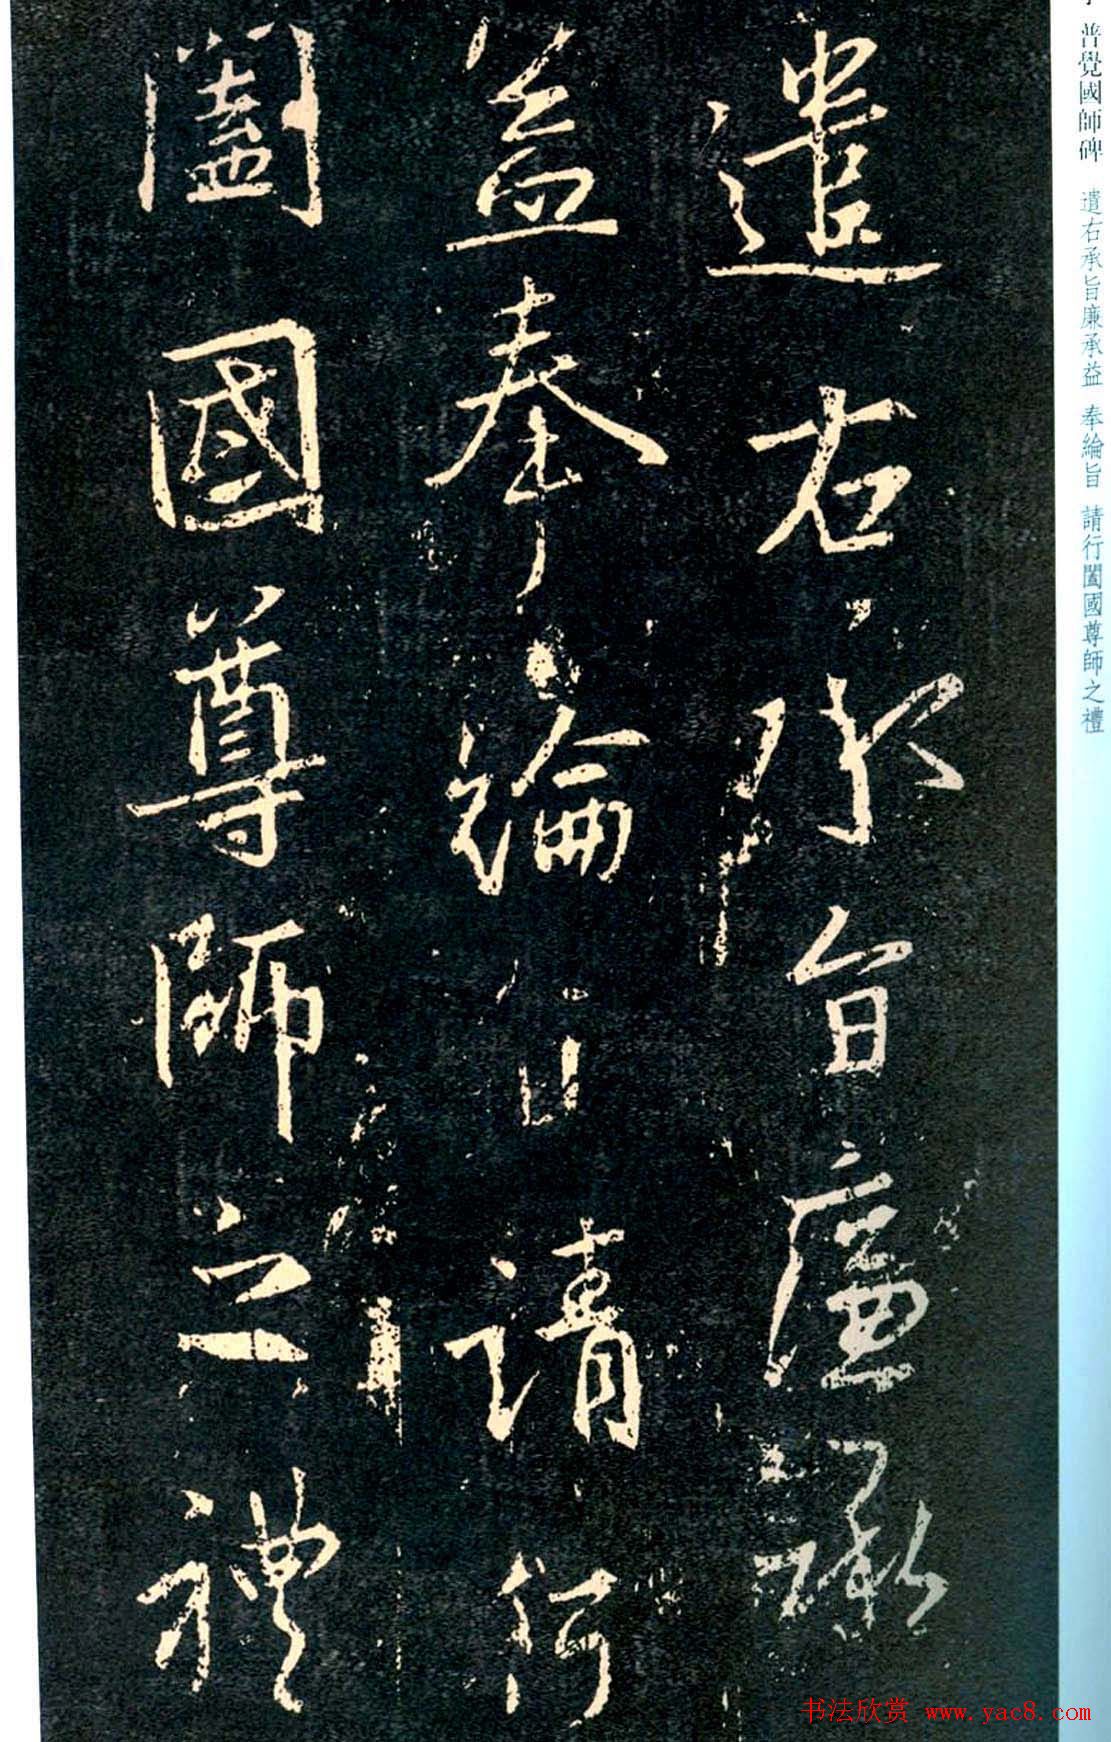 普覺國師碑
遣右承旨廉承益 奉綸旨 請行闔國尊師之禮
遣右承旨廉承
益奉綸旨請行
闔國尊師之禮
书法欣赏 www.yac8.com